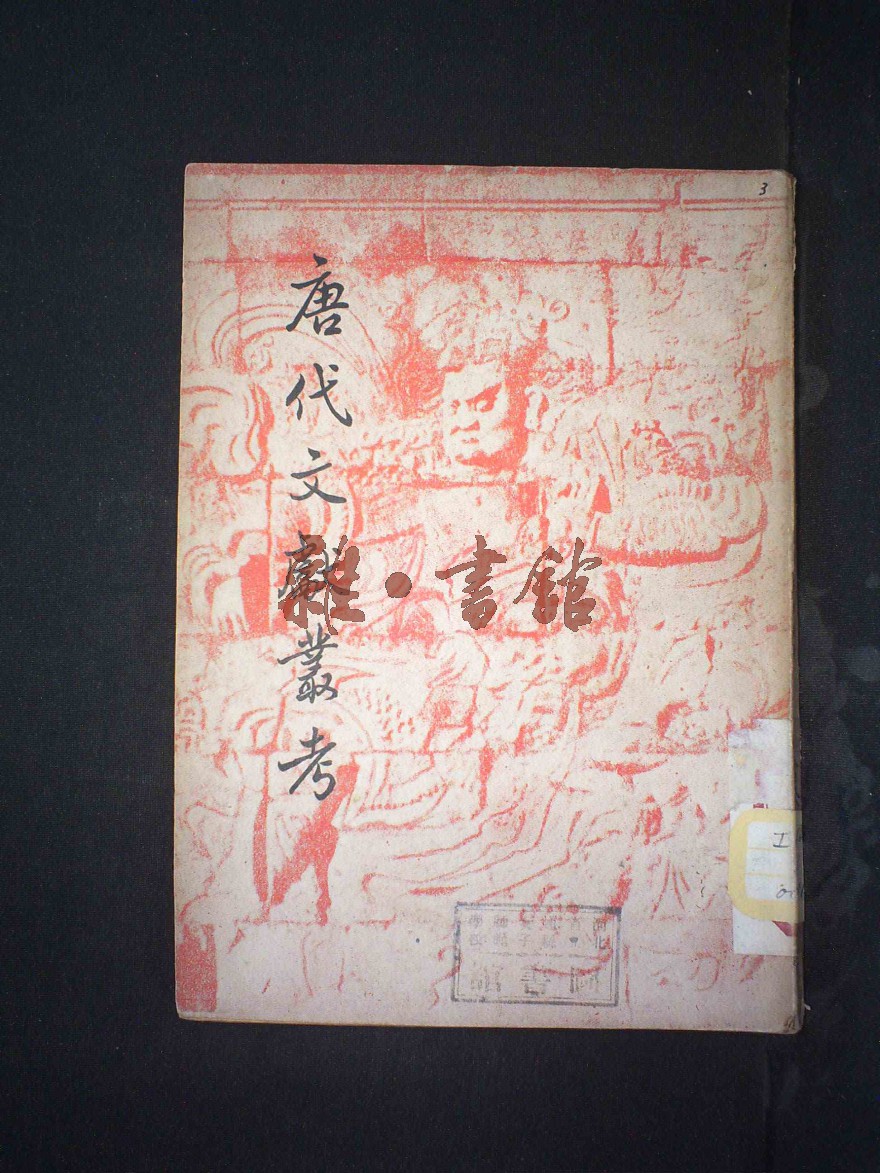 3
唐代文獻叢考
雜·書館
圖書館